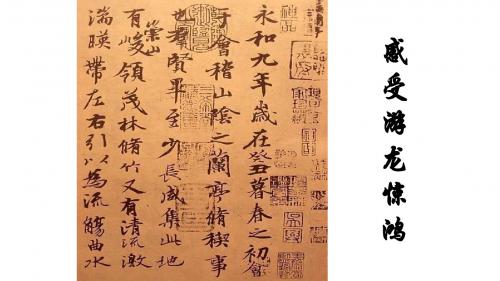 永和九年歲在癸丑暮春之初會
于會稽山陰之蘭亭脩稧事
也羣賢畢至少長咸集此地
有崇山峻領茂林脩竹又有清流激
湍暎帶左右引以為流觴曲水
感受游龙惊鸿